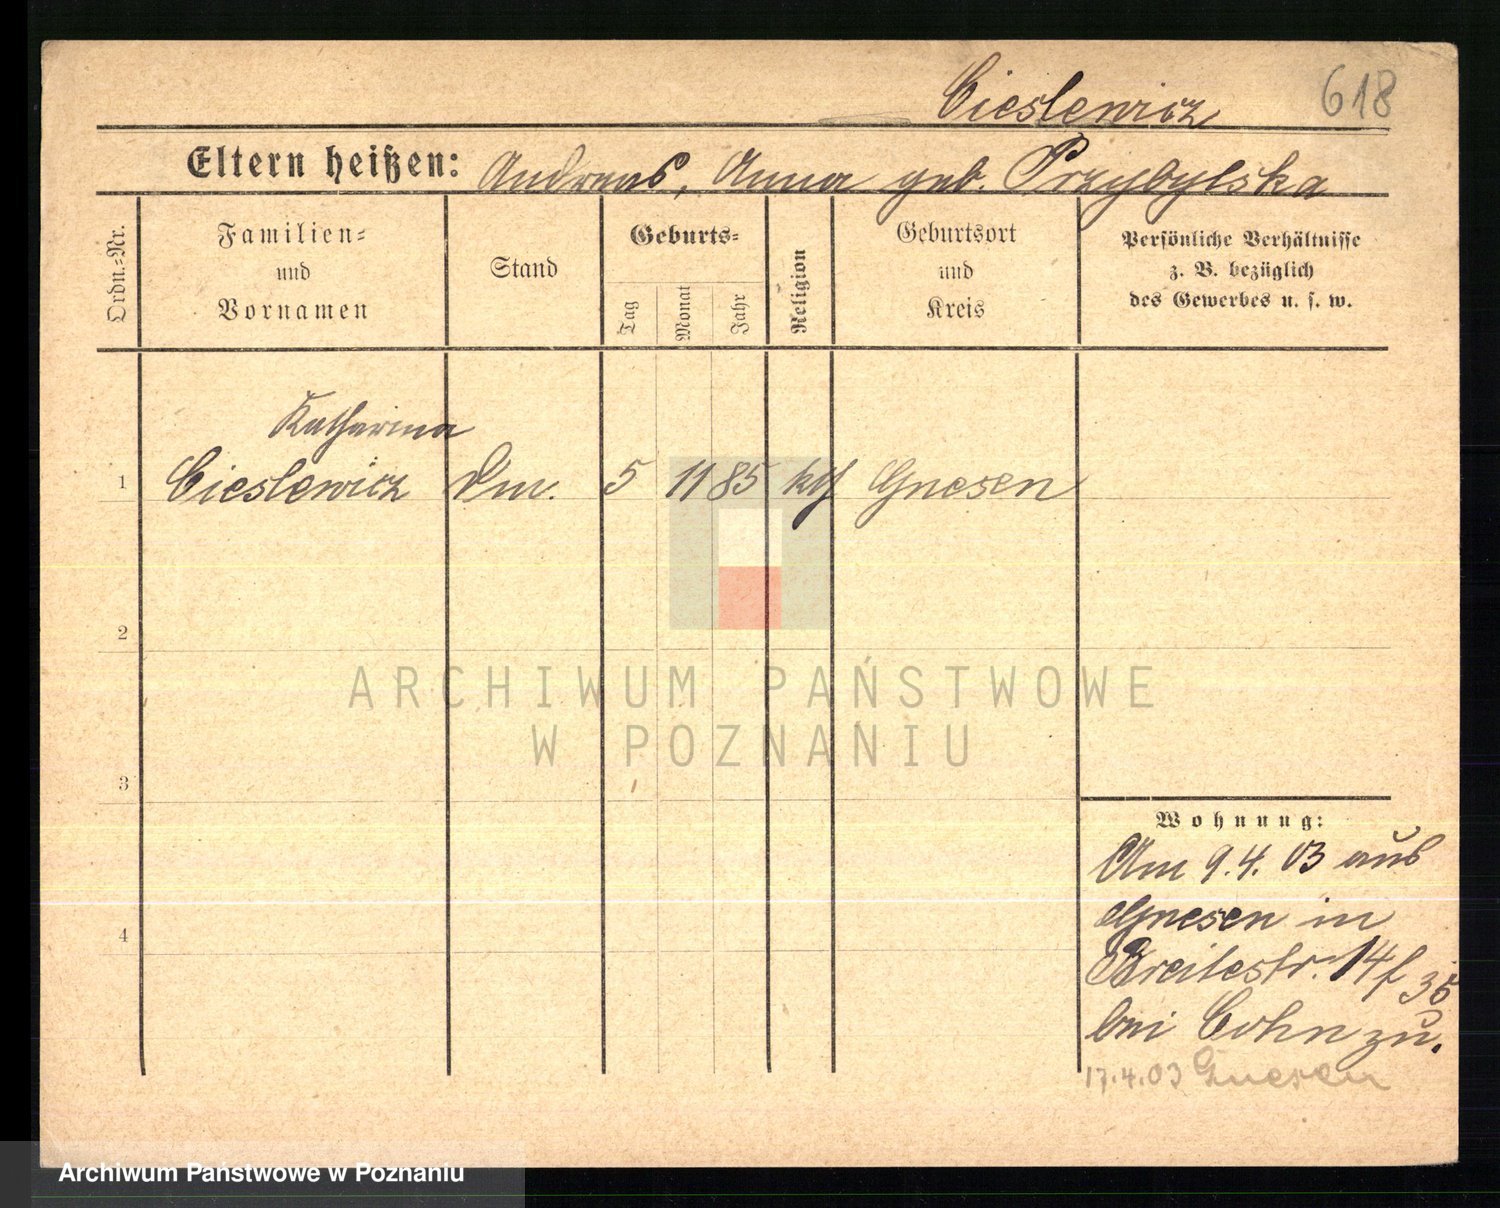 Cieslewicz
618
Eltern heißen: Andreas, Anna geb. Przybylska
Ordn.=Nr.
Familien=
und
Vornamen
Stand
Geburts=
Tag
Monat
Jahr
Religion
Geburtsort
und
Kreis
Persönliche Verhältnisse
z. B. bezüglich
des Gewerbes u. s. w.
Katharina
1 Cieslewicz Dm. 5 11 85 kth Gnesen
2
3
4
ARCHIWUM PAŃSTWOWE
W POZNANIU
Wohnung:
Am 9.4.03 aus
Gnesen in
Breitestr. 14
bei Cohn zu.
17.4.03 Gnesen
Archiwum Państwowe w Poznaniu